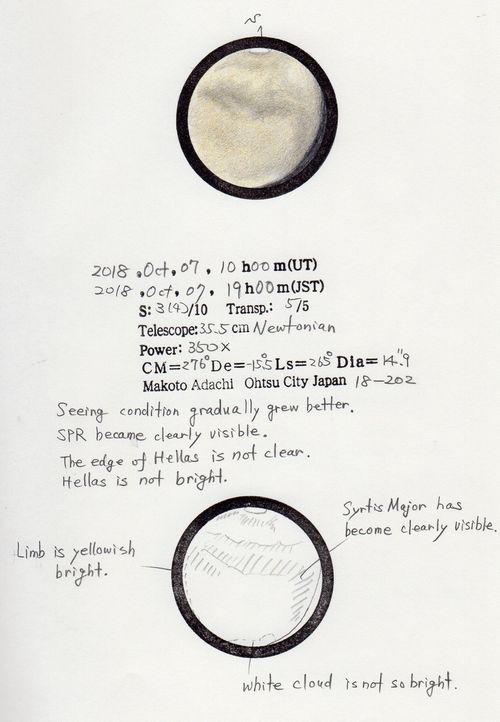 S
2018, Oct, 07, 10 h00 m(UT)
2018, Oct, 07, 19h00m(JST)
S: 3(4)/10 Transp.: 5/5
Telescope: 35.5 cm Newtonian
Power: 350X
CM=276° De=-15.5° Ls=265° Dia=14."9
Makoto Adachi Ohtsu City Japan 18-202
Seeing condition gradually grew better.
SPR became clearly visible.
The edge of Hellas is not clear.
Hellas is not bright.
Syrtis Major has
become clearly visible.
Limb is yellowish
bright.
white cloud is not so bright.